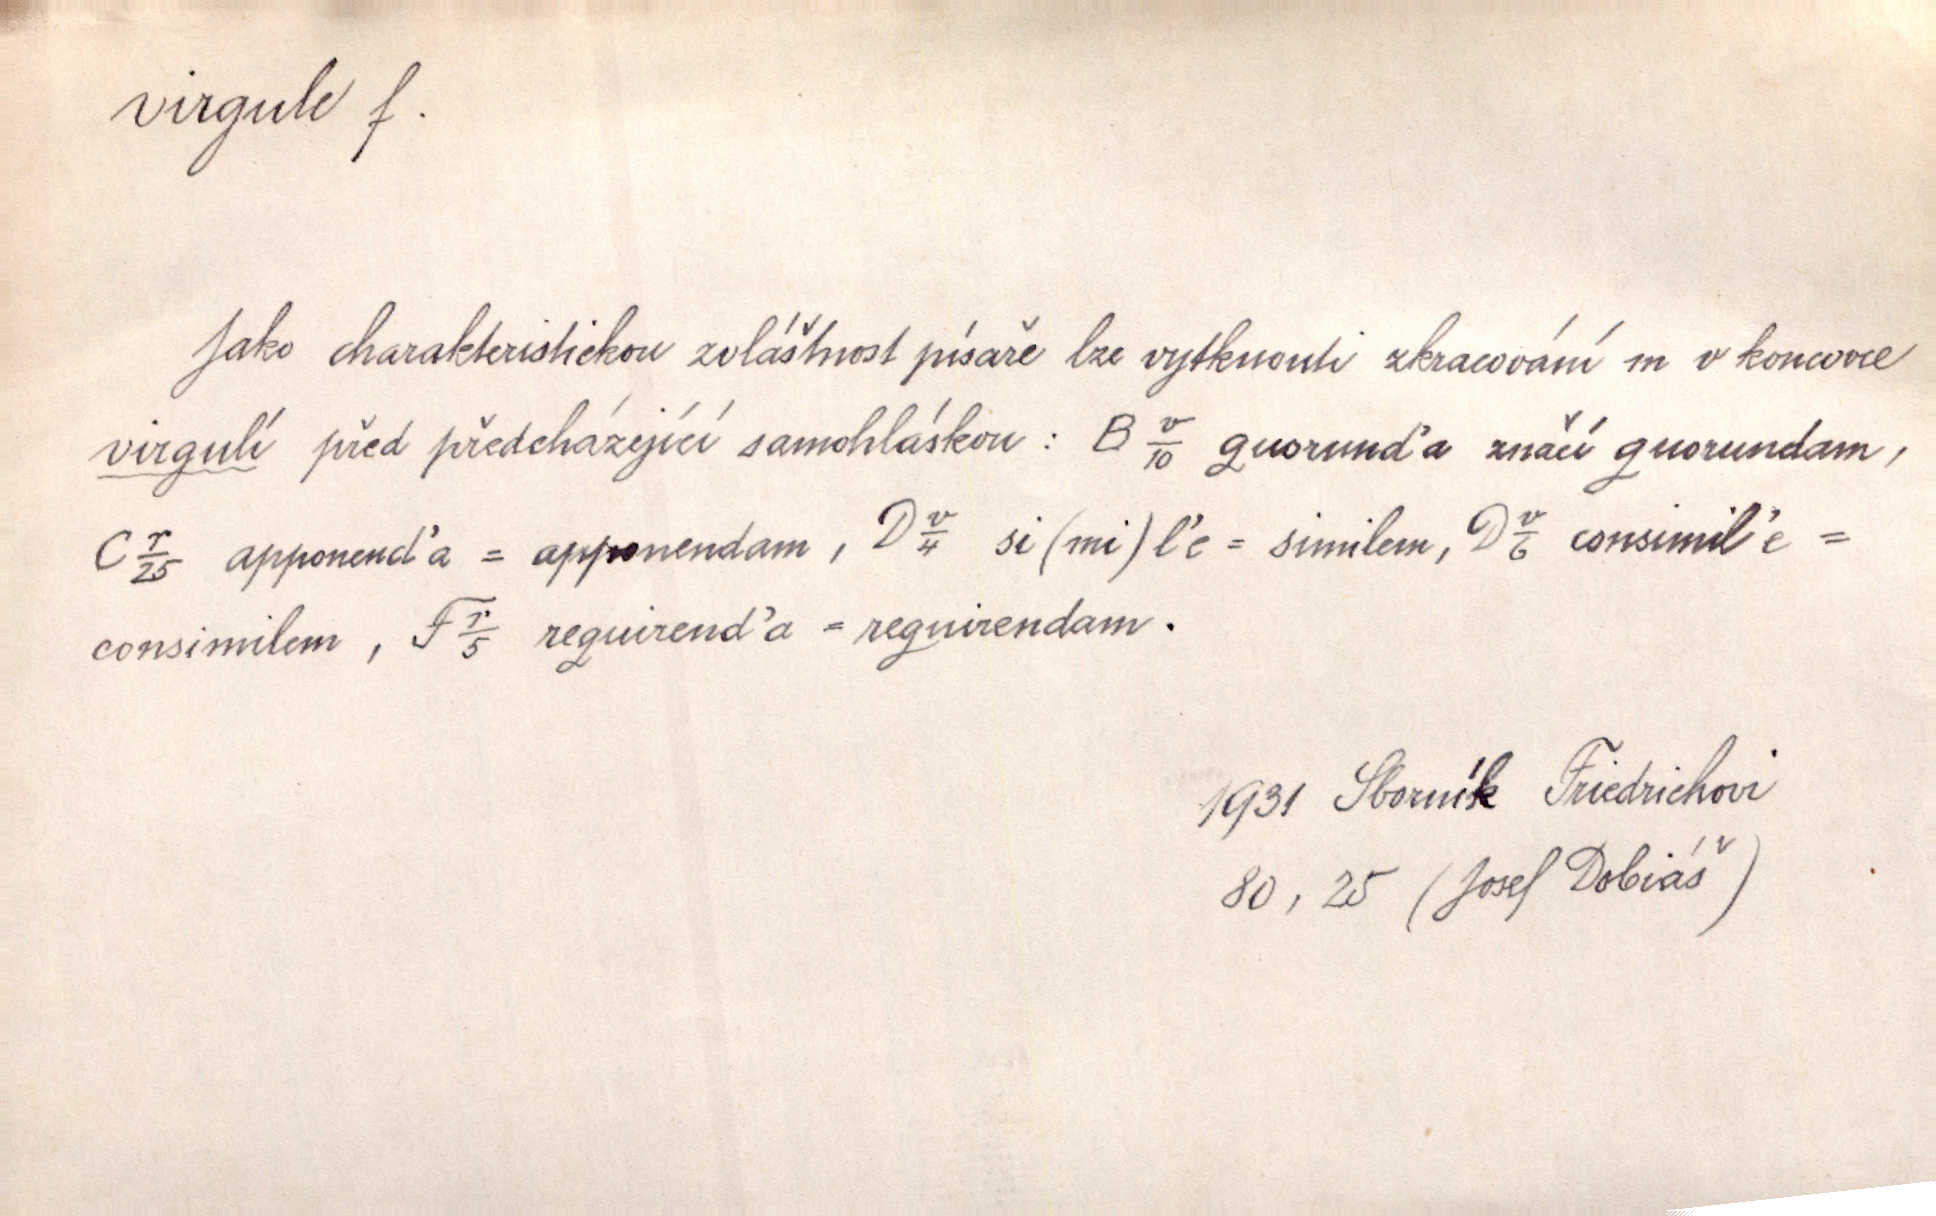 virgule f.
Jako charakteristickou zvláštnost písaře lze vytknouti zkracování m v koncovce
virgulí před předcházející samohláskou: B v/10 quorund'a značí quorundam,
C r/25 apponend'a = apponendam, D v/4 si(mi)l'e = similem, D v/6 consimil'e =
consimilem, F r/5 requirend'a = requirendam.
1931 Sborník Friedrichovi
80, 25 (Josef Dobiáš)